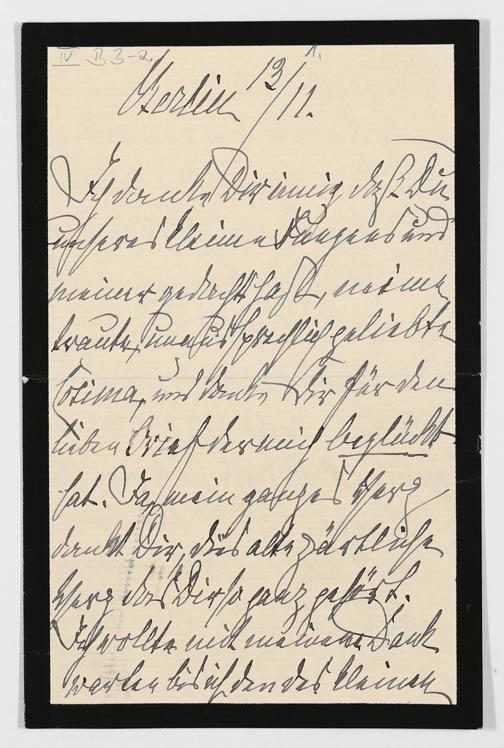 IV B 3-2
1.
Berlin 13/11.
Ich danke Dir innig daß Du
unseres kleinen Jungens und
meiner gedacht hast, meine
traute, unaussprechlich geliebte
Cosima, und danke Dir für den
lieben Brief der mich beglückt
hat. Ja, mein ganzes Herz
dankt Dir, dies alte zärtliche
Herz das Dir so ganz gehört.
Ich wollte mit meinem Dank
warten bis ich den des kleinen